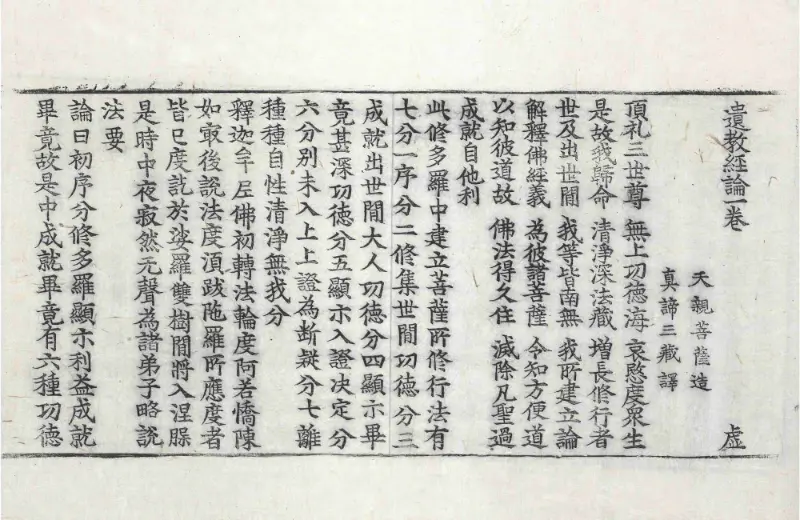 遺教經論一卷 虛
天親菩薩造
真諦三藏譯
頂礼三世尊 無上功徳海 哀愍度衆生
是故我歸命 清淨深法藏 增長修行者
世及出世間 我等皆南無 我所建立論
解釋佛經義 為彼諸菩薩 令知方便道
以知彼道故 佛法得久住 滅除凡聖過
成就自他利
此修多羅中建立菩薩所修行法有
七分一序分二修集世間功徳分三
成就出世間大人功徳分四顯示畢
竟甚深功徳分五顯示入證决定分
六分别未入上上證為斷疑分七離
種種自性清淨無我分
釋迦牟尼佛初轉法輪度阿若憍陳
如最後說法度湏跋陁羅所應度者
皆已度訖於娑羅雙樹間將入涅槃
是時中夜寂然无聲為諸弟子略說
法要
論曰初序分修多羅顯示利益成就
畢竟故是中成就畢竟有六種功徳